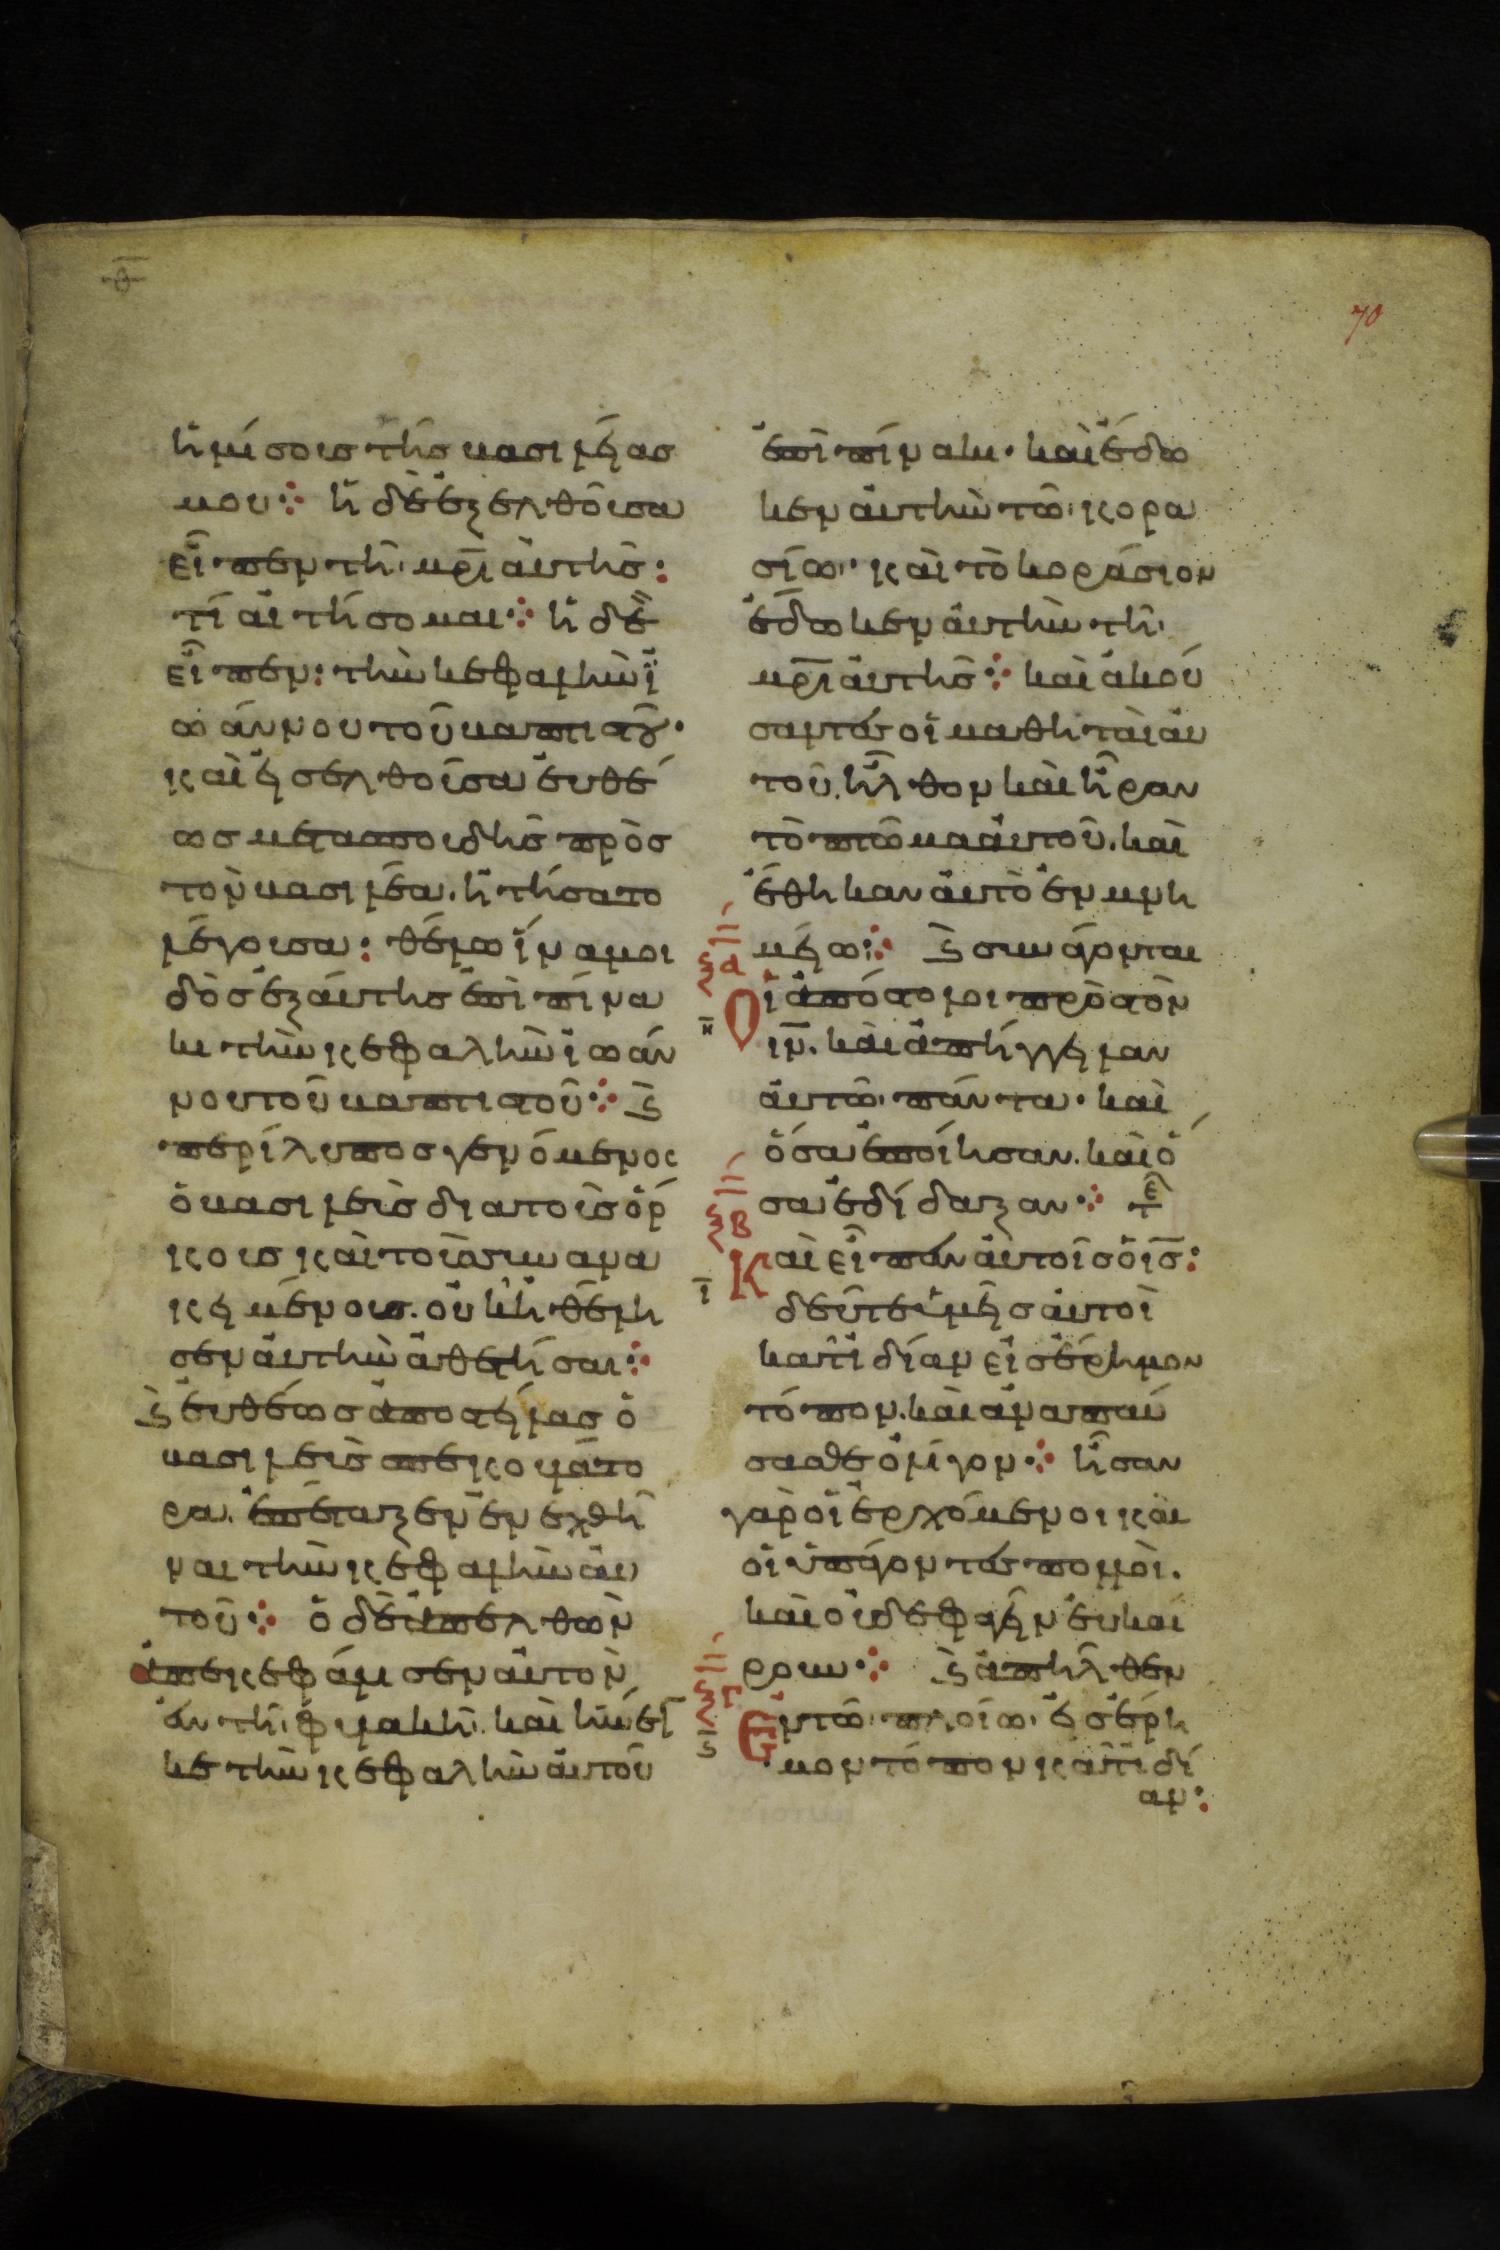 θ
70
ἡμίσους τῆς βασιλείας
μου ⁘ ἡ δὲ ἐξελθοῦσα
εἶπεν τῆ μρ̅ι αὐτῆς:
τί αἰτήσομαι ⁘ ἡ δὲ
εἶπεν: τὴν κεφαλὴν ϊ
ωάννου τοῦ βαπτιστοῦ·
καὶ εἰσελθοῦσα εὐθέ
ως μετασπουδῆς πρὸς
τὸν βασιλέα. ἠτήσατο
λέγουσα: θέλω ἵνα μοι
δὸς ἐξαὐτῆς ἐπὶ πίνα
κι τὴν κεφαλὴν ϊωάν
νου τοῦ βαπτιστοῦ ⁘ ϛ̀
περίλυπος γενόμενος
ὁ βασιλεὺς διὰ τοὺς ὅρ
κους καὶ τοὺς συνανα
κειμένους. οὐκ ἠθέλη
σεν αὐτὴν ἀθετῆσαι ⁘
ϛ̀ εὐθέως ἀποστείλας ὁ
βασιλεὺς σπεκουλάτο
ρα. ἐπέταξεν ἐνεχθῆ
ναι τὴν κεφαλὴν αὐ
τοῦ ⁘ ὁ δὲ ἀπελθὼν
ἀπεκεφάλισεν αὐτὸν
ἐν τῆ φυλακῆ. καὶ ἤνεγ
κε τὴν κεφαλὴν αὐτοῦ
ἐπὶ πίνακι· καὶ ἔδω
κεν αὐτὴν τῶ κορα
σίω· καὶ τὸ κοράσιον
ἔδωκεν αὐτὴν τῆ
μρ̅ι αὐτῆς ⁘ καὶ ἀκού
σαντες οἱ μαθηταὶ αὐ
τοῦ. ἦλθον καὶ ἦραν
τὸ πτῶμα αὐτοῦ. καὶ
ἔθηκαν αὐτὸ ἐν μνη
μείω ⁘ ϛ̀ συνάγονται
ξα
Οἱ ἀπόστολοι πρὸς τὸν
η̅
ιν̅. καὶ ἀπήγγειλαν
αὐτῶ πάντα· καὶ
ὅσα ἐποίησαν. καὶ ὅ
σα ἐδίδαξαν ⁘ τε
ξβ
Καὶ εἶπεν αὐτοῖς ὁ ις̅:
ι̅
δεῦτε ὑμεῖς αὐτοὶ
κατ' ἰδίαν εἰς ἔρημον
τόπον. καὶ ἀναπαύ
σασθε ὀλίγον ⁘ ἦσαν
γὰρ οἱ ἐρχόμενοι καὶ
οἱ ὑπάγοντες πολλοὶ.
καὶ οὐδὲ φαγεῖν εὐκαί
ρουν ⁘ ϛ̀ ἀπῆλθεν
ξγ
Ἐν τῶ πλοίω εἰς ἔρη
ϛ̅
μον τόπον κατ' ἰδί
αν: